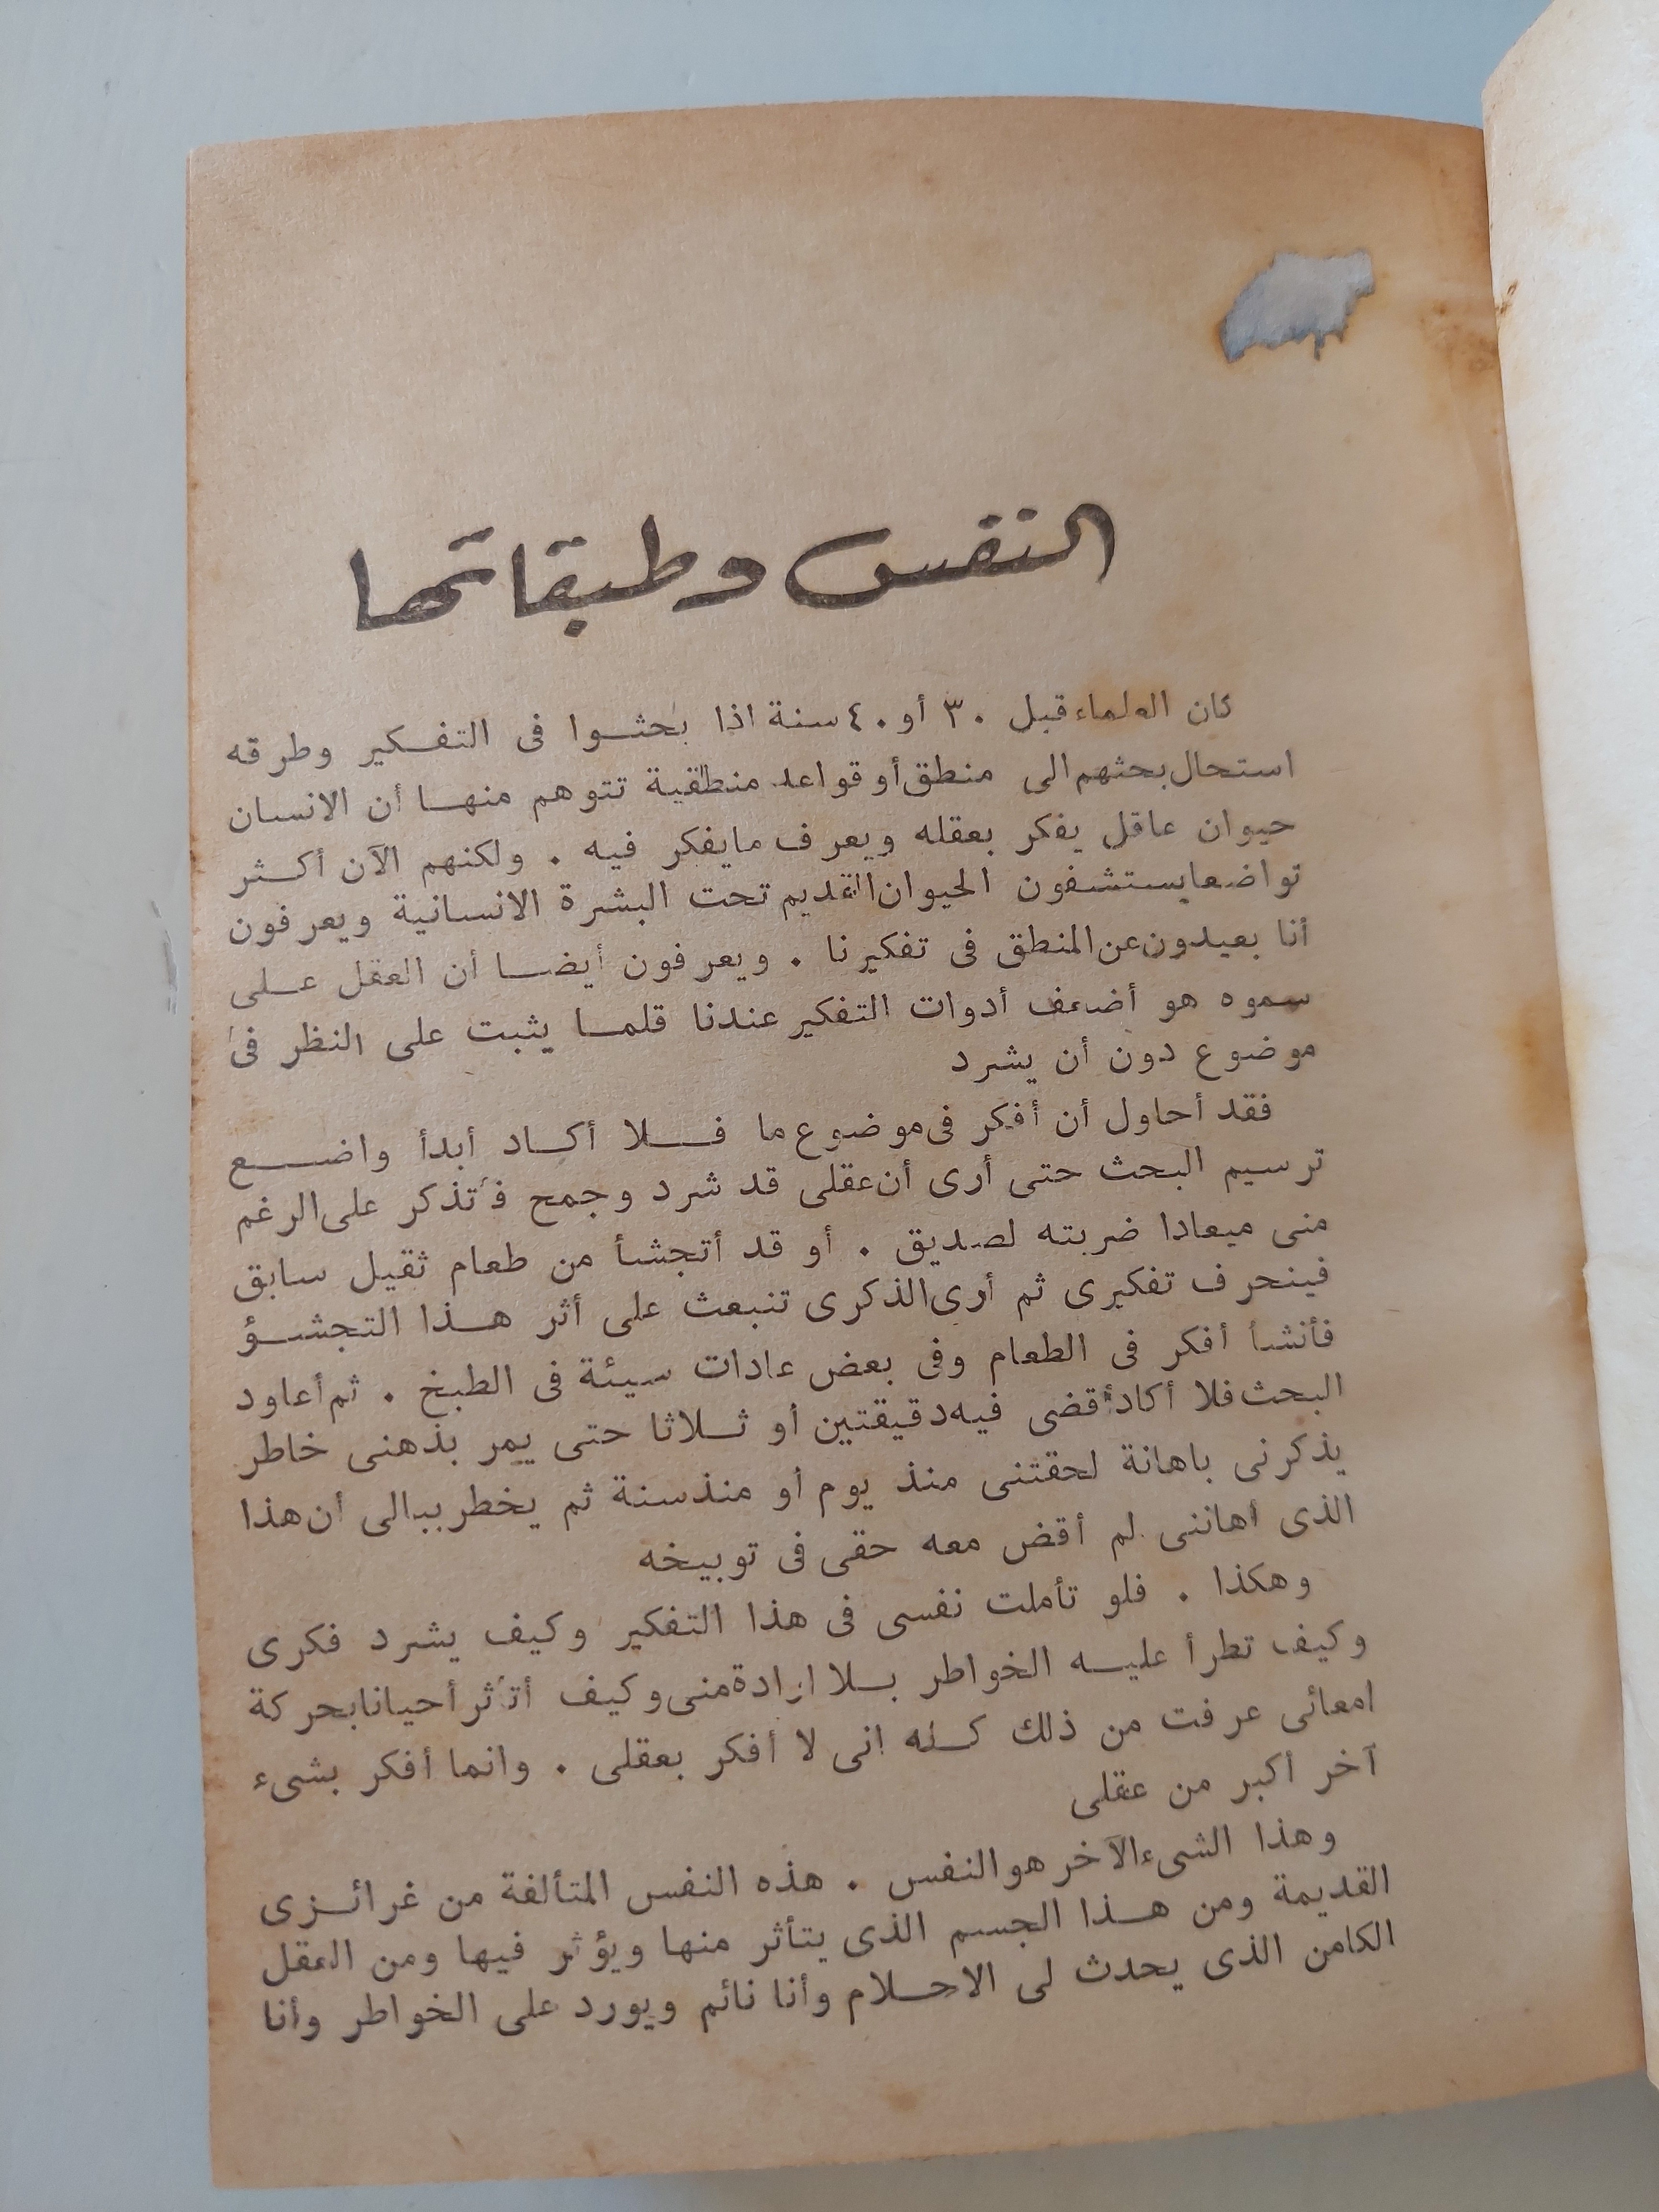 النفس وطبقاتها
كان العلماء قبل ٣٠ أو ٤٠ سنة اذا بحثوا فى التفكير وطرقه
استحال بحثهم الى منطق أو قواعد منطقية تتوهم منها أن الانسان
حيوان عاقل يفكر بعقله ويعرف مايفكر فيه . ولكنهم الآن أكثر
تواضعا يستشفون الحيوان القديم تحت البشرة الانسانية ويعرفون
أنا بعيدون عن المنطق فى تفكيرنا . ويعرفون أيضا أن العقل على
سموه هو أضعف أدوات التفكير عندنا قلما يثبت على النظر فى
موضوع دون أن يشرد
فقد أحاول أن أفكر فى موضوع ما فلا أكاد أبدأ واضع
ترسيم البحث حتى أرى أن عقلى قد شرد وجمح فأتذكر على الرغم
منى ميعادا ضربته لصديق . أو قد أتجشأ من طعام ثقيل سابق
فينحرف تفكيرى ثم أرى الذكرى تنبعث على أثر هذا التجشؤ
فأنشأ أفكر فى الطعام وفى بعض عادات سيئة فى الطبخ . ثم أعاود
البحث فلا أكاد أقضى فيه دقيقتين أو ثلاثا حتى يمر بذهنى خاطر
يذكرنى باهانة لحقتنى منذ يوم أو منذ سنة ثم يخطر ببالى أن هذا
الذى أهاننى لم أقض معه حقى فى توبيخه
وهكذا . فلو تأملت نفسى فى هذا التفكير وكيف يشرد فكرى
وكيف تطرأ عليه الخواطر بلا ارادة منى وكيف أتأثر أحيانا بحركة
امعائى عرفت من ذلك كله انى لا أفكر بعقلى . وانما أفكر بشىء
آخر أكبر من عقلى
وهذا الشىء الآخر هو النفس . هذه النفس المتألفة من غرائزى
القديمة ومن هذا الجسم الذى يتأثر منها ويؤثر فيها ومن العقل
الكامن الذى يحدث لى الاحلام وأنا نائم ويورد على الخواطر وأنا